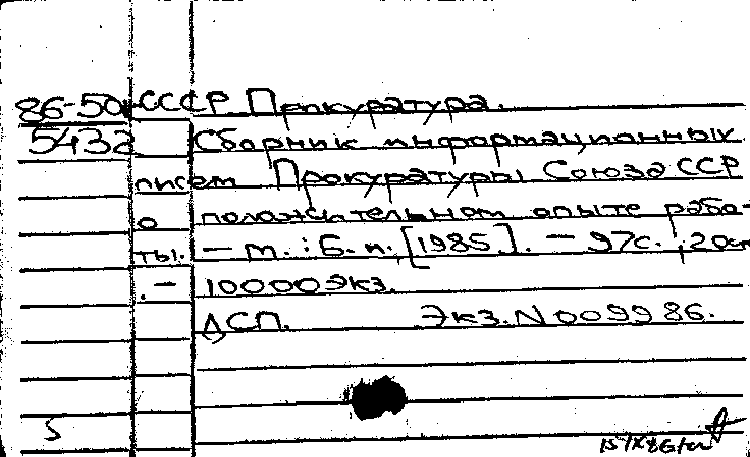 86-50 СССР Прокуратура.
5432 Сборник информационных
писем Прокуратуры Союза ССР
о положительном опыте рабо-
ты. — М. : Б. и., [1985]. — 97с. ; 20см
. — 10000экз.
ДСП. Экз. N 009986.
5